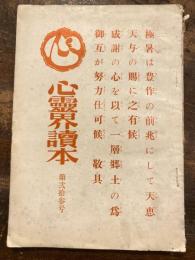 極暑は豊作の前兆にして天恵
天与の賜に之有候
感謝の心を以て一層郷土の為
御互が努力仕可候　敬具
心
心靈界讀本
第弐拾参号